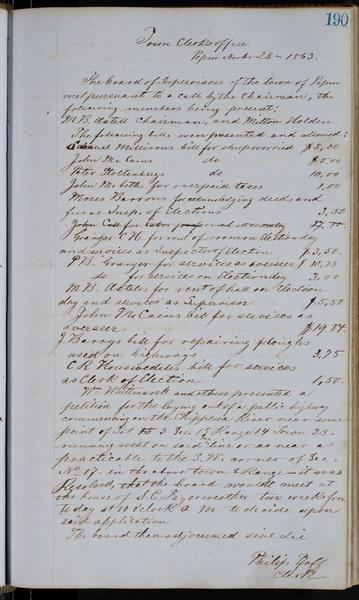 190
Town Clerks office
Pepin Novbr 28 - 1863.
The board of Supervisors of the town of Pepin
met pursuant to a call by the Chairman, the
following members being present;
M. B. Axtell Chairman, and Milton Holden.
The following bills were presented and allowed:
Samuel bill for sheep worried $5,00
John McCains do $5.00
Peter Stoltenburg do 10,00
John for overpaid taxes 1,00
Moses Barrons for acknowledging deeds and
fees as Insp. of Elections 3,50
John for labor performed
Granger C N for rent of room on election day
and services as Inspector of election $3,50.
P B. Granger for services as overseer $
do for services on Election day 3,00
M B. Axteles for rent of hall on Election
day and services as Supervisor $5,50
John McCains bill for services as
overseer $19,87.
J Barrys bill for repairing ploughs
used on highways 3,75
C R bill for services
as Clerk of Election 1,50.
Wm and others presented a
petition for the laying out of a public highway
commencing at the Chippewa River near some
point of Range 14 Town 23
running west on said line or as near as
practicable to the S. W. corner of Sec.
No 17. in the above town & Range - it was
Resolved, that the board would meet at
the house of two weeks from
to day at 10 oclock A M. to decide upon
said application
The board then adjourned sine die
Philip Pfaff
Clerk